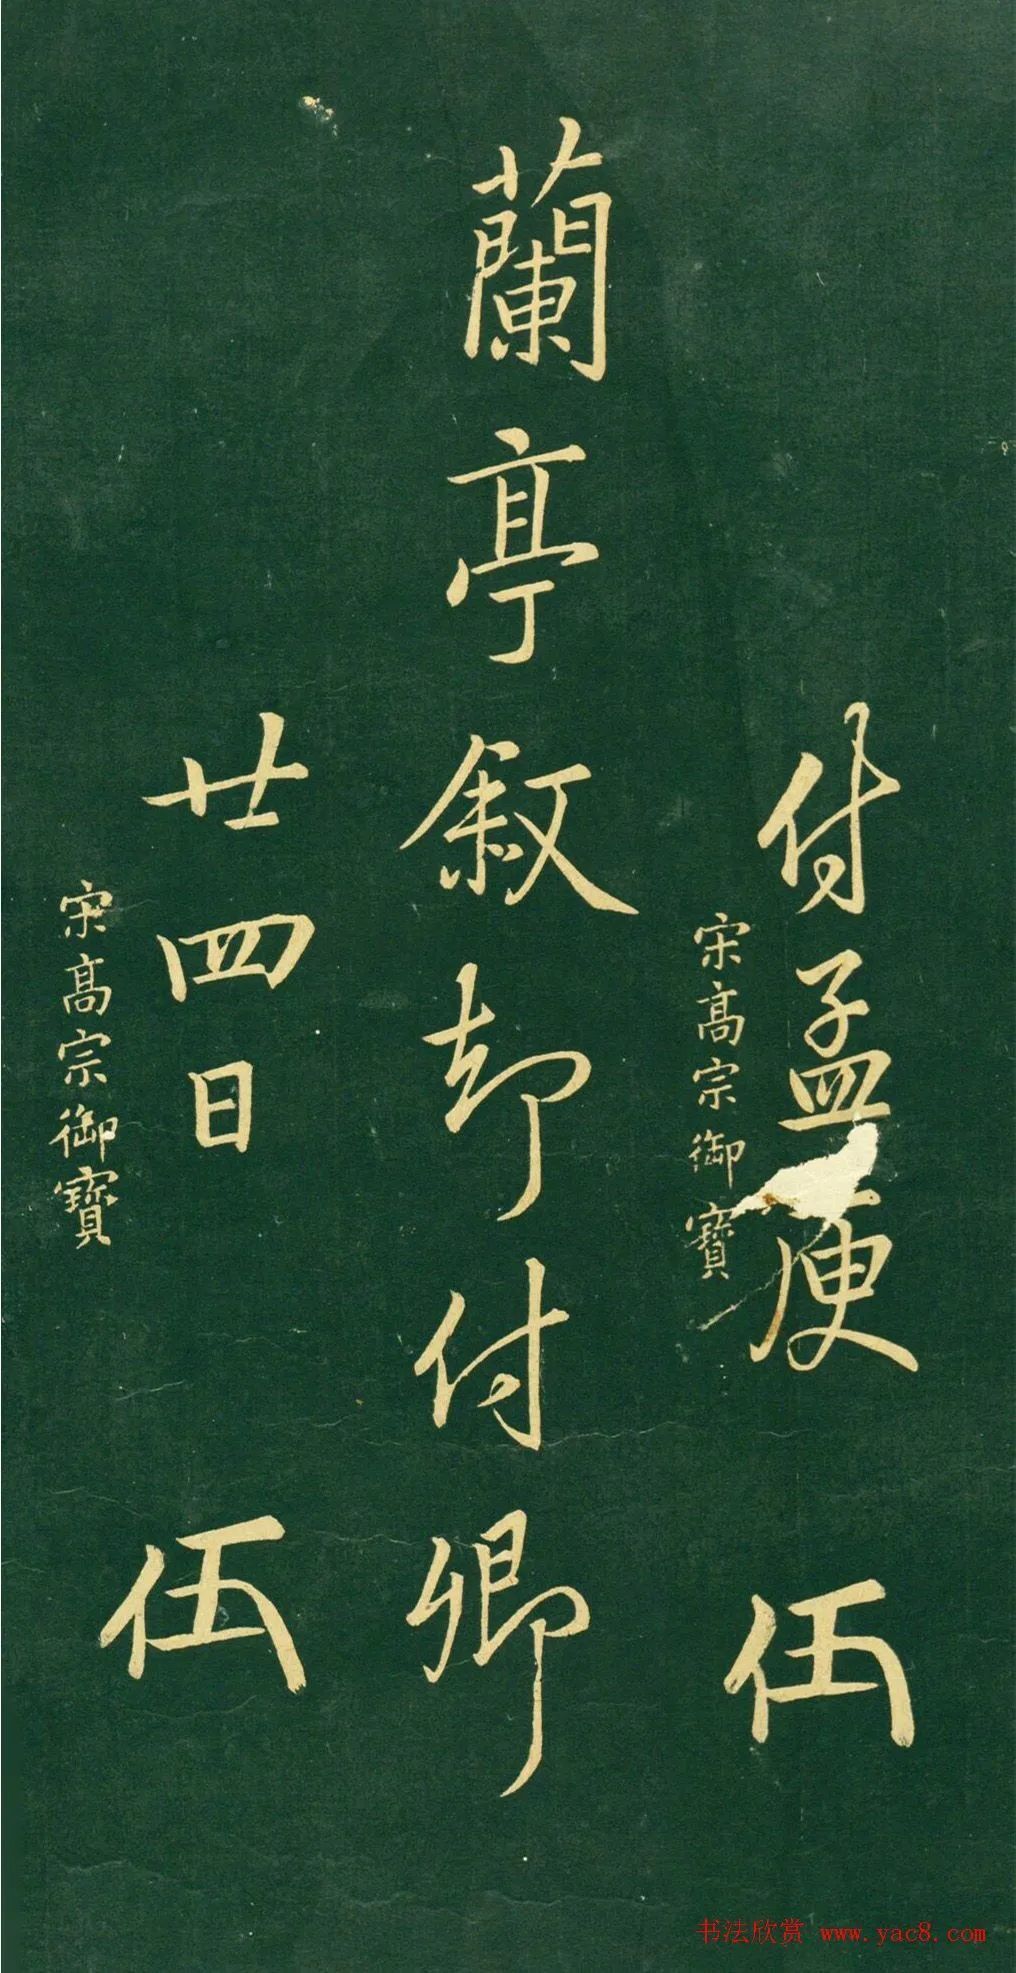 付孟庾 伍
宋髙宗御寶
蘭亭叙却付卿
廿四日 伍
宋髙宗御寶
书法欣赏 www.yac8.com